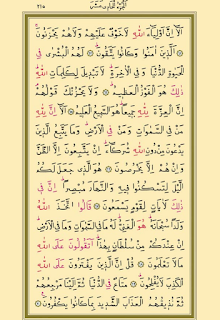 الجزء الحادي عشر ٢١٥
أَلَآ إِنَّ أَوْلِيَآءَ اللّٰهِ لَا خَوْفٌ عَلَيْهِمْ وَلَا هُمْ يَحْزَنُونَ
اَلَّذِينَ اٰمَنُوا وَكَانُوا يَتَّقُونَ لَهُمُ الْبُشْرٰى فِي
الْحَيٰوةِ الدُّنْيَا وَفِي الْاٰخِرَةِ لَا تَبْدِيلَ لِكَلِمَاتِ اللّٰهِ
ذٰلِكَ هُوَ الْفَوْزُ الْعَظِيمُ وَلَا يَحْزُنْكَ قَوْلُهُمْ
إِنَّ الْعِزَّةَ لِلّٰهِ جَمِيعًا هُوَ السَّمِيعُ الْعَلِيمُ أَلَآ إِنَّ لِلّٰهِ
مَنْ فِي السَّمٰوَاتِ وَمَنْ فِي الْأَرْضِ وَمَا يَتَّبِعُ الَّذِينَ
يَدْعُونَ مِنْ دُونِ اللّٰهِ شُرَكَآءَ إِنْ يَتَّبِعُونَ إِلَّا الظَّنَّ
وَإِنْ هُمْ إِلَّا يَخْرُصُونَ هُوَ الَّذِي جَعَلَ لَكُمُ
الَّيْلَ لِتَسْكُنُوا فِيهِ وَالنَّهَارَ مُبْصِرًا إِنَّ فِي
ذٰلِكَ لَاٰيَاتٍ لِقَوْمٍ يَسْمَعُونَ قَالُوا اتَّخَذَ اللّٰهُ
وَلَدًا سُبْحَانَهُ هُوَ الْغَنِيُّ لَهُ مَا فِي السَّمٰوَاتِ وَمَا فِي الْأَرْضِ
إِنْ عِنْدَكُمْ مِنْ سُلْطَانٍ بِهٰذَا أَتَقُولُونَ عَلَى اللّٰهِ
مَا لَا تَعْلَمُونَ قُلْ إِنَّ الَّذِينَ يَفْتَرُونَ عَلَى اللّٰهِ
الْكَذِبَ لَا يُفْلِحُونَ مَتَاعٌ فِي الدُّنْيَا ثُمَّ إِلَيْنَا مَرْجِعُهُمْ
ثُمَّ نُذِيقُهُمُ الْعَذَابَ الشَّدِيدَ بِمَا كَانُوا يَكْفُرُونَ